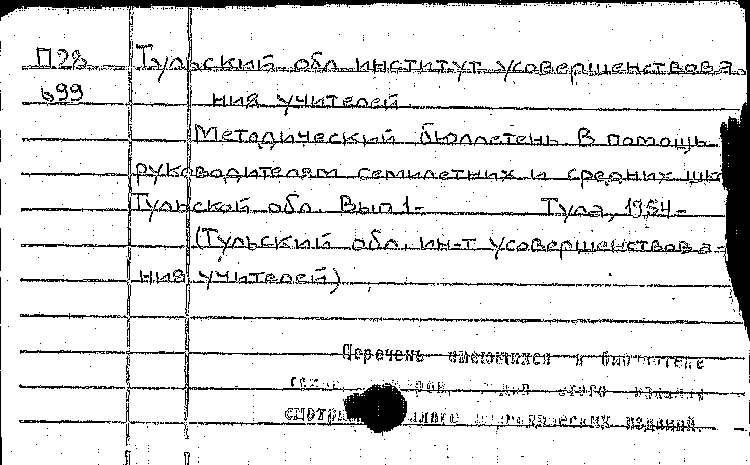 П28 Тульский обл институт усовершенствова
б99 ния учителей
Методический бюллетень В помощь
руководителям семилетних и средних шк
Тульской обл. Вып 1- Тула, 1954-
(Тульский обл. ин-т усовершенствова-
ния учителей)
Перечень имеющихся в библиотеке
этого издания
изданий.